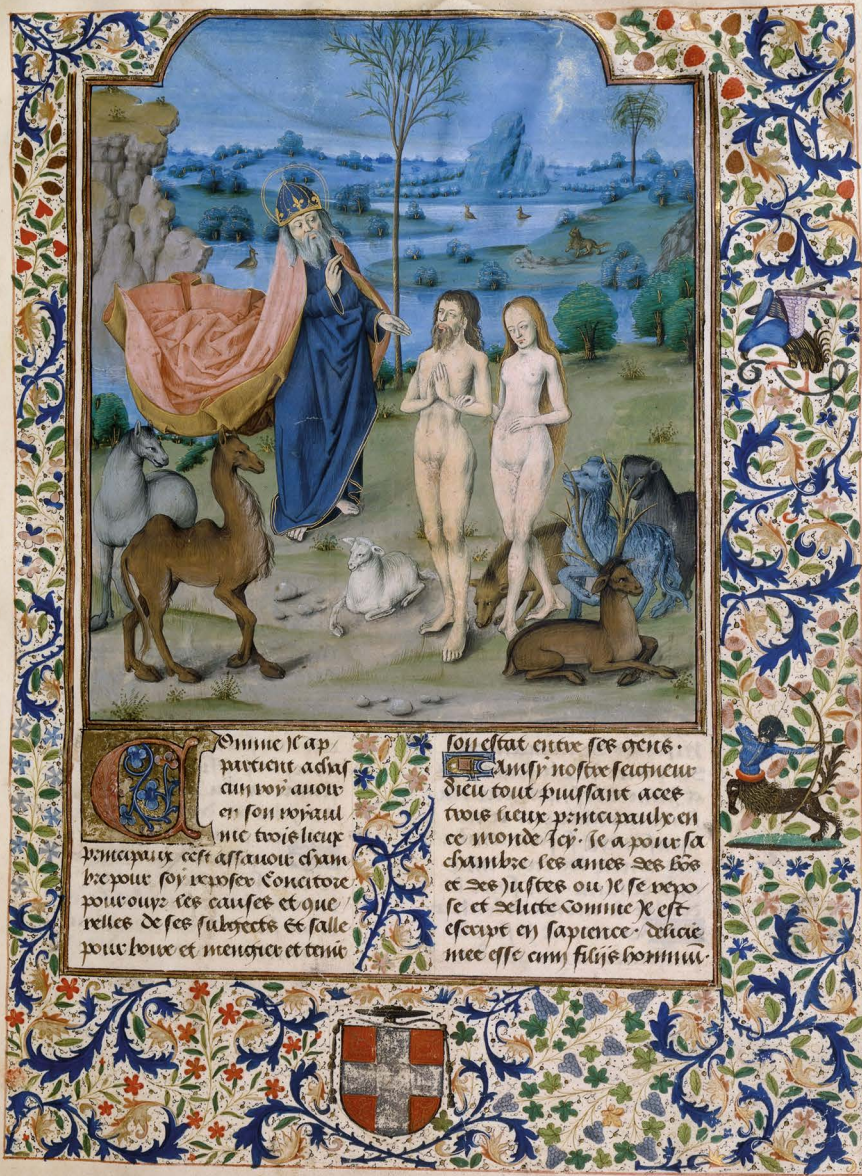 Comme il ap
partient a chas
cun roy auoir
en son royaul
me trois lieux
principaux cest assauoir cham
bre pour soy reposer Concitore
pour ouyr les causes et que
relles de ses subgects Et salle
pour boire et mengier et tenir
son estat entre ses gens.
Ainsy nostre seigneur
dieu tout puissant a ces
trois lieux principaulx en
ce monde Icy. Il a pour sa
chambre les ames des bõs
et des Justes ou Il se repo
se et delicte Comme Il est
escript en sapience. delicie
mee esse cum filijs hominum.